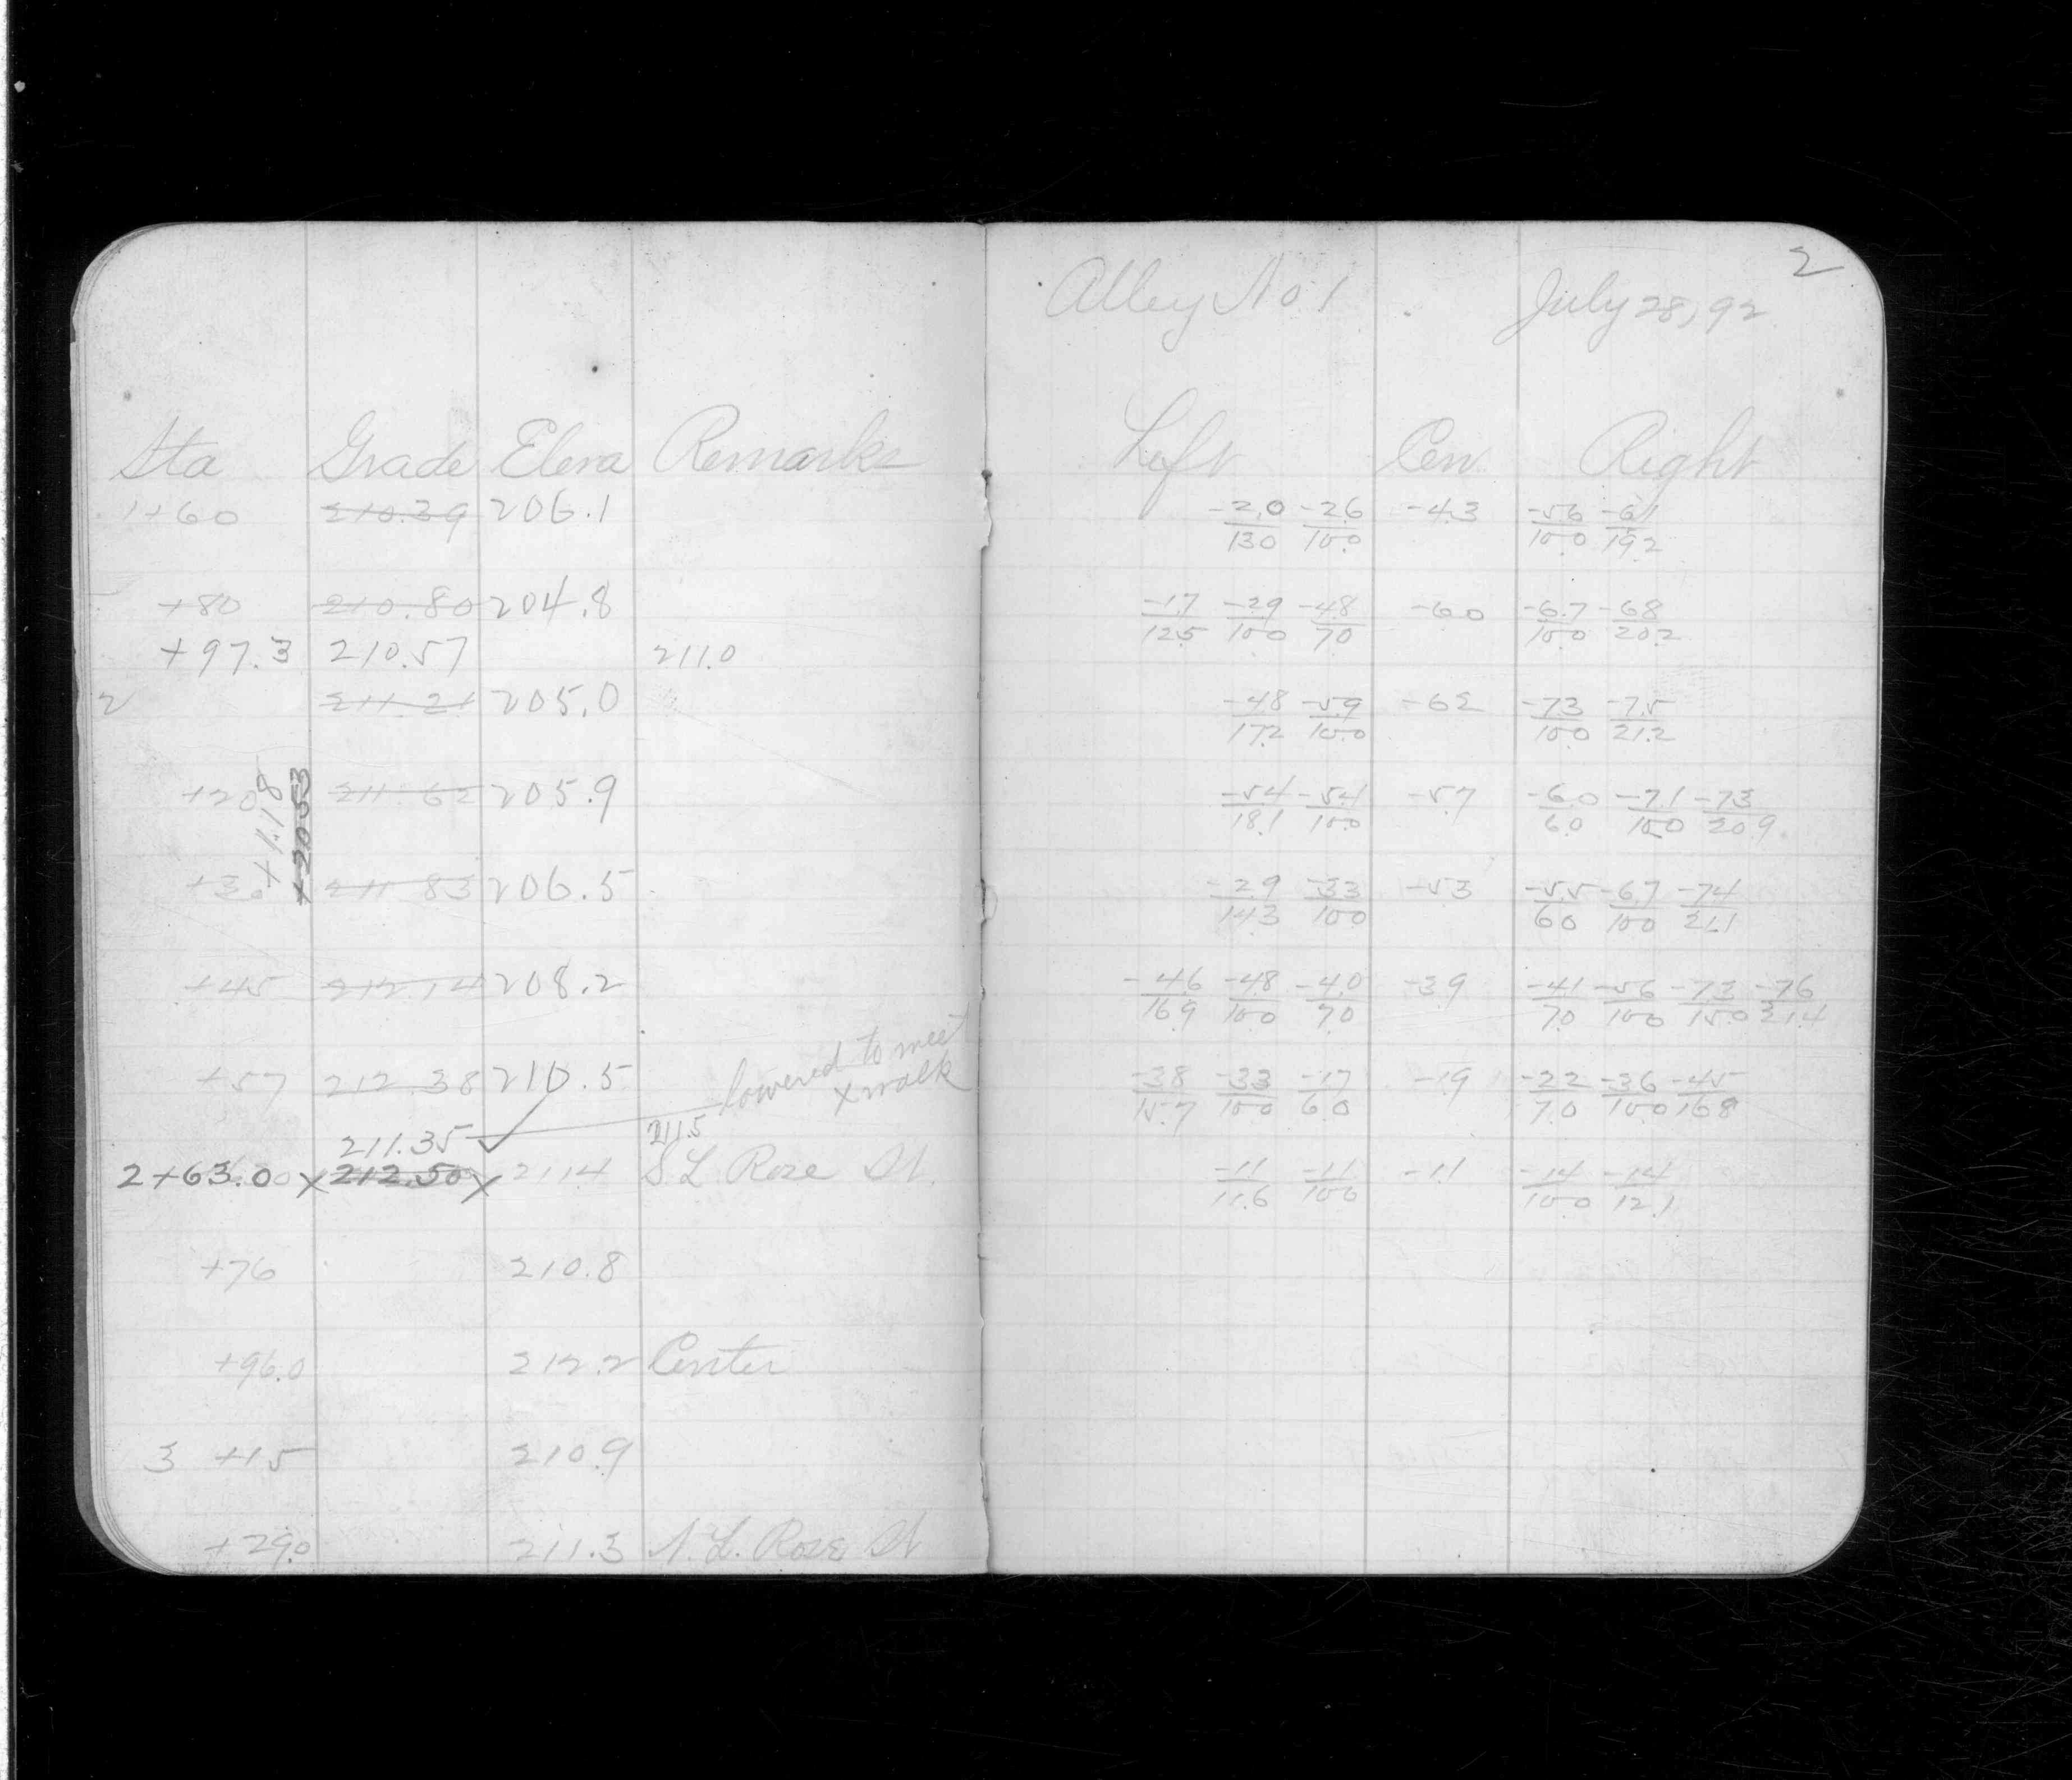 2
Alley No 1 July 28, 92
Sta Grade Eleva Remarks Left Cen Right
1+60 210.39 206.1 -2.0/13.0 -2.6/10.0 -4.3 -5.6/10.0 -6.1/19.2
+80 210.80 204.8 -1.7/12.5 -2.9/10.0 -4.8/7.0 -6.0 -6.7/10.0 -6.8/20.2
+97.3 210.57 211.0
2 211.21 205.0 -4.8/17.2 -5.9/10.0 -6.2 -7.3/10.0 -7.5/21.2
+20 211.62 205.9 -5.4/18.1 -5.4/10.0 -5.7 -6.0/6.0 -7.1/10.0 -7.3/20.9
+1.18
+2053
+30 211.83 206.5 -2.9/14.3 -3.3/10.0 -5.3 -5.5/6.0 -6.7/10.0 -7.4/21.1
+45 212.14 208.2 -4.6/16.9 -4.8/10.0 -4.0/7.0 -3.9 -4.1/7.0 -5.6/10.0 -7.3/15.0 -7.6/21.4
lowered to meet
x walk
+57 212.38 210.5 -3.8/15.7 -3.3/10.0 -1.7/6.0 -1.9 -2.2/7.0 -3.6/10.0 -4.5/16.8
211.35 ✓ 211.5
2+63.0 x 212.50 x 211.4 S.L. Rose St. -1.1/11.6 -1.1/10.0 -1.1 -1.4/10.0 -1.4/12.1
+76 210.8
+96.0 212.2 Center
3 +15 210.9
+29.0 211.3 N.L. Rose St